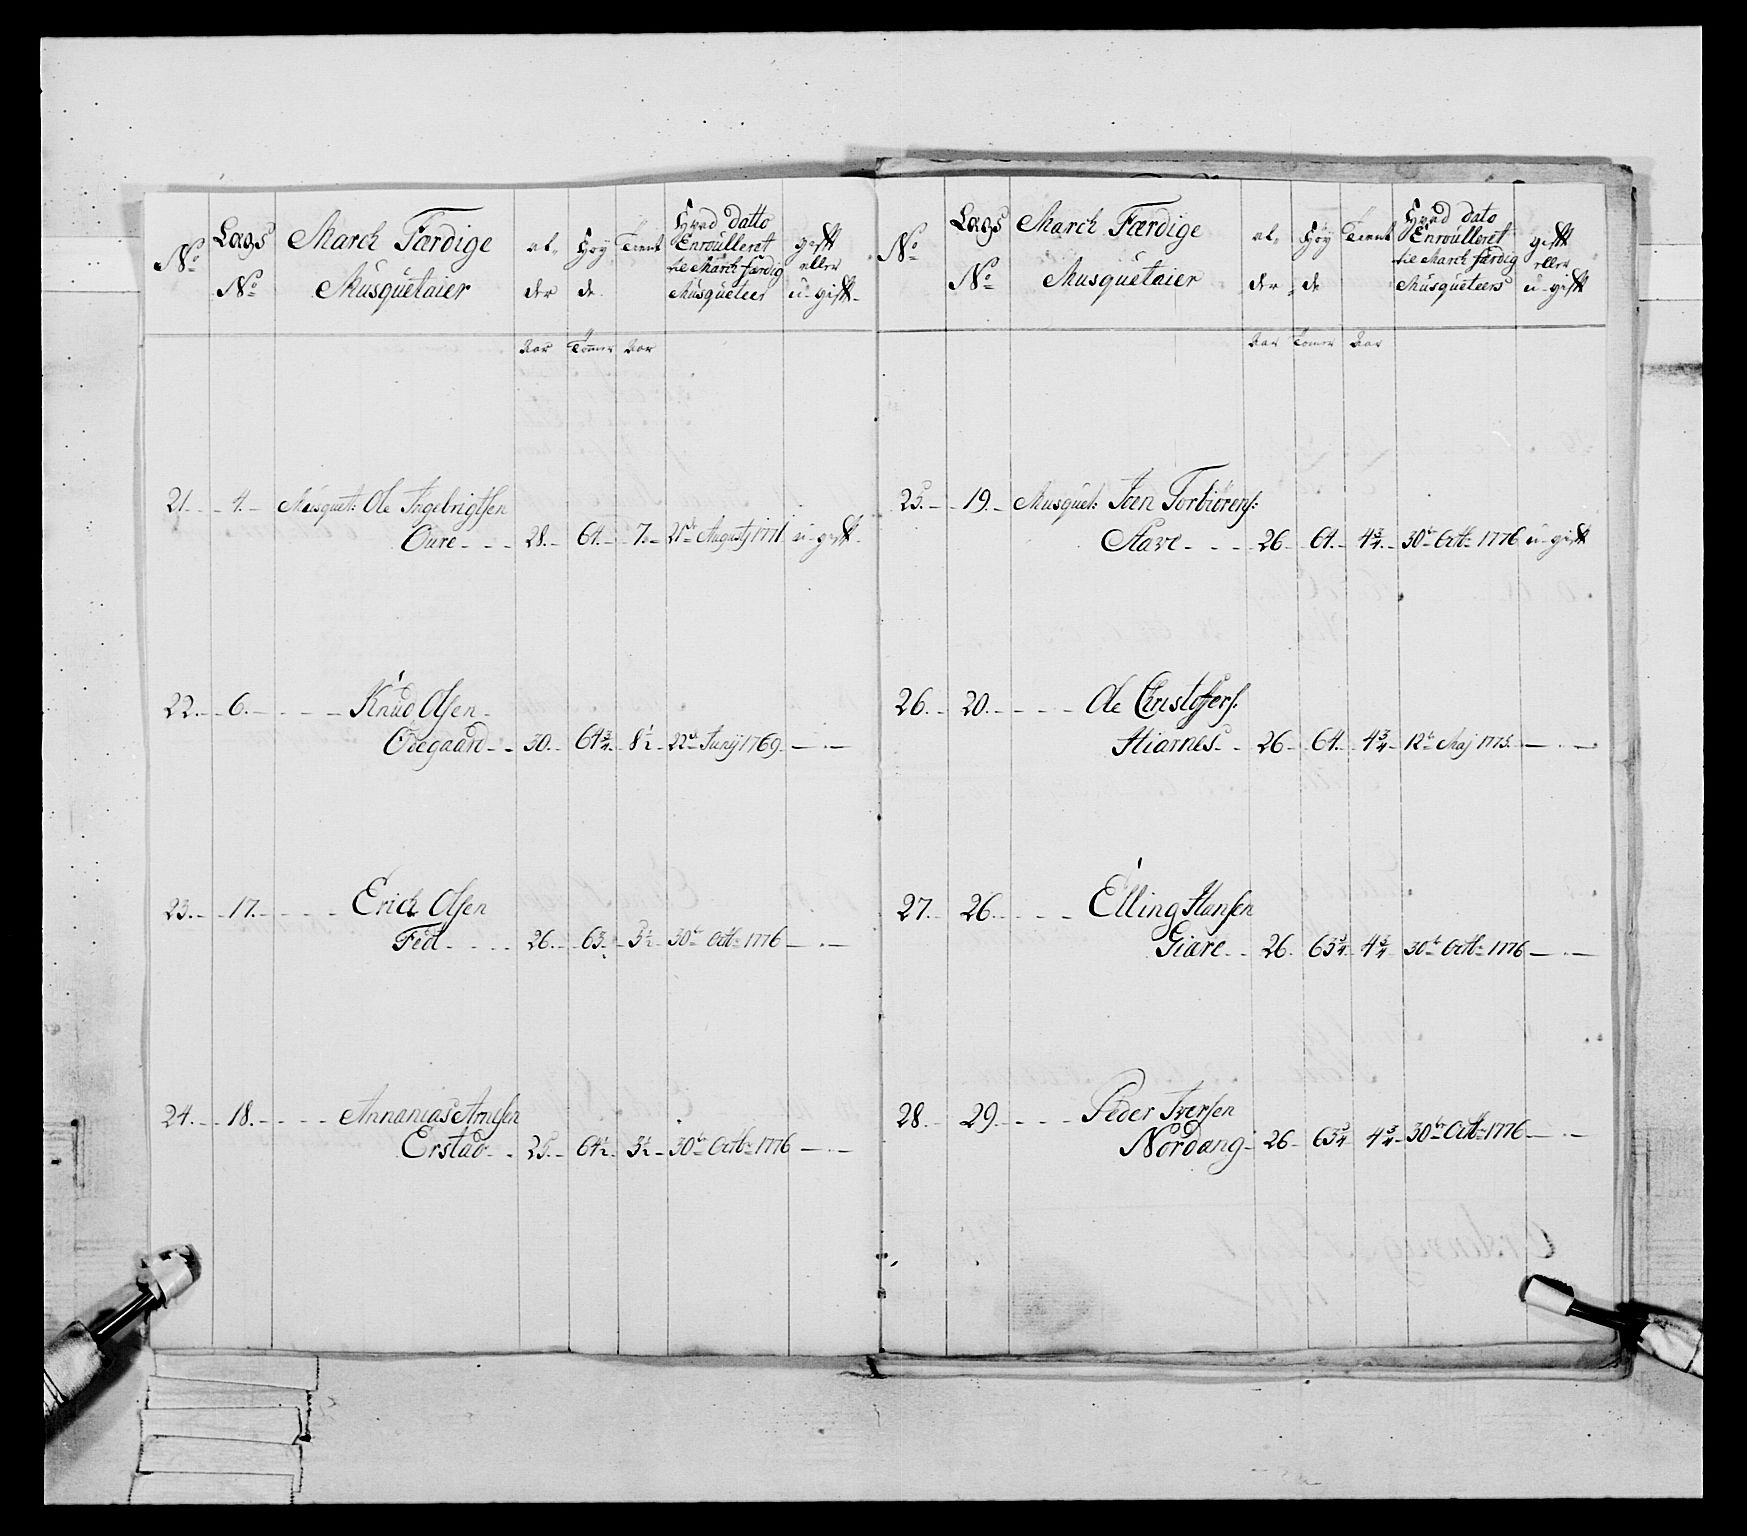 No Lags No March Færdige Musquetaier al, der Høy de Tient Hvad datto Enroulleret til March færdig Musqueteer gift eller u-gift
Aar Tommer Aar
21. 4. Musquet: Ole Ingebrigtsen
Oure 28. 64. 7. 21de Augustj 1771 u-gift
22. 6. Knud Olsen
Ødegaard 30. 64 3/4 8 1/2 22de Junij 1769 — . —
23. 17. Erich Olsen
Fed 26. 63. 3 1/2 30te Octb: 1776 — . —
24. 18. Annanias Arnesen
Erstad 25. 64 1/2 3 1/2 30te Octb: 1776 — . —
No Lags No March Færdige Musquetaier al, der Høy de Tient Hvad dato Enroulleret til March færdig Musqueteers gift eller u-gift
Aar Tomer Aar
25. 19. Musquet: Iver Torbiørens:
Stave 26 64. 4 3/4 30te Octb: 1776 u-gift
26. 20. Ole Christophers:
Hiørnes 26 64. 4 3/4 12te Maj 1775. — . —
27. 26. Elling Hansen
Giære 26. 63 3/4 4 3/4 30te Octb: 1776 — . —
28. 29. Peder Iversen
Nordang 26 63 3/4 4 3/4 30te Octb: 1776 — . —